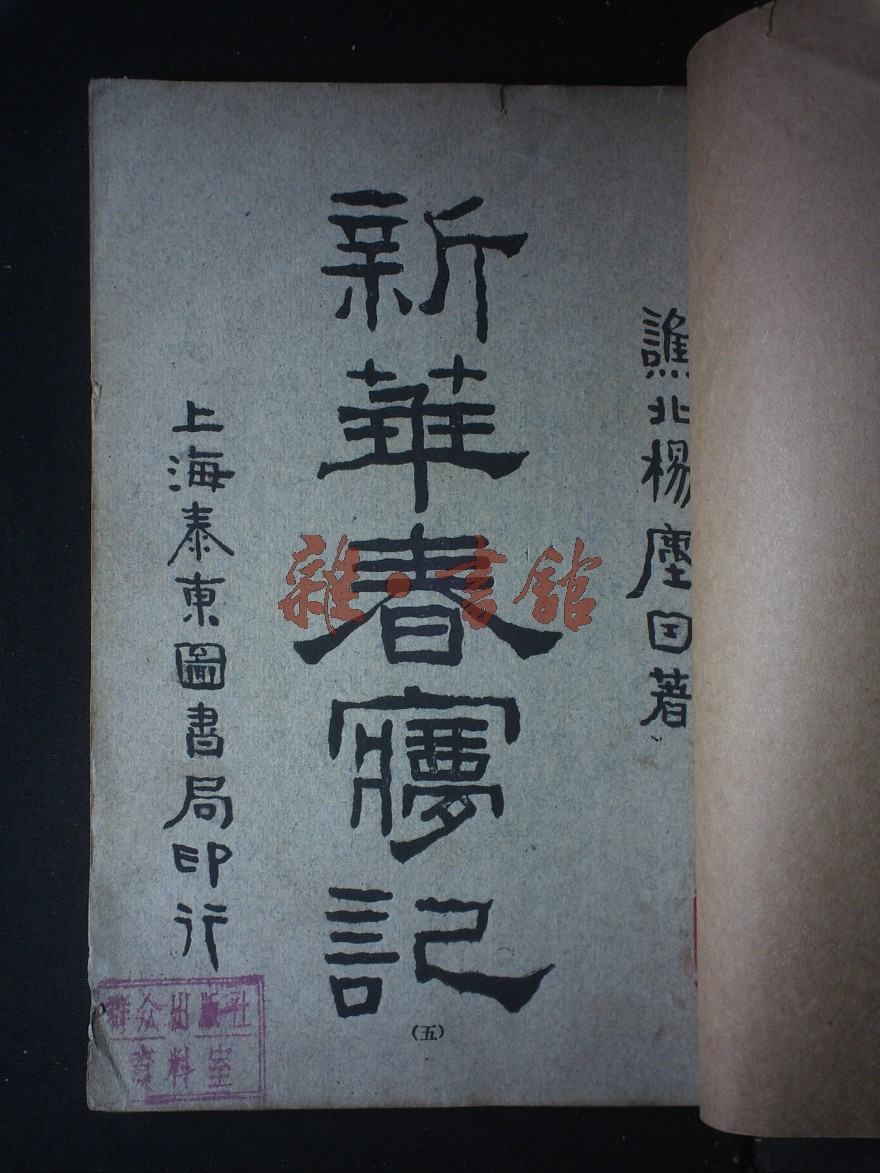 譙北楊塵因著
新華春夢記
(五)
上海泰東圖書局印行
群众出版社
资料室
雜·書館